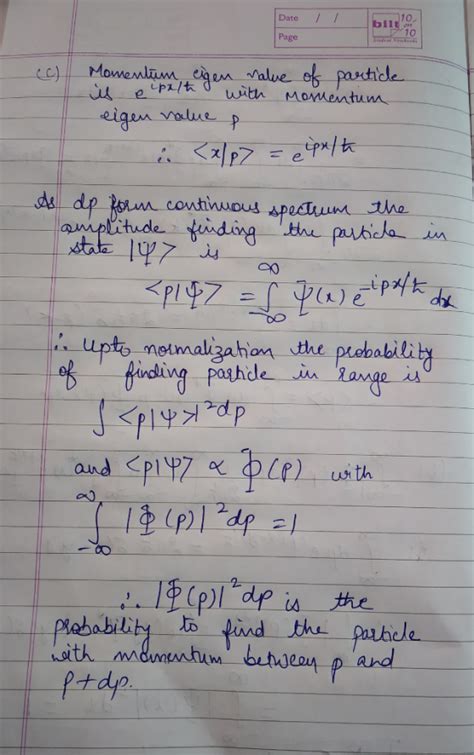 Date / /
Page
bilt 10 on 10
(c) Momentum eigen value of particle
is e^ipx/ħ with momentum
eigen value p
∴ <x|p> = e^ipx/ħ
As dp form continuous spectrum the
amplitude finding the particle in
state |Ψ> is
<p|Φ> = ∫_-∞^∞ Ψ(x) e^-ipx/ħ dx
∴ Upto normalization the probability
of finding particle in range is
∫ <p|Ψ>|^2 dp
and <p|Ψ> ∝ Φ(p), with
∫_-∞^∞ |Φ(p)|^2 dp = 1
∴ |Φ(p)|^2 dp is the
probability to find the particle
with momentum between p and
p + dp.